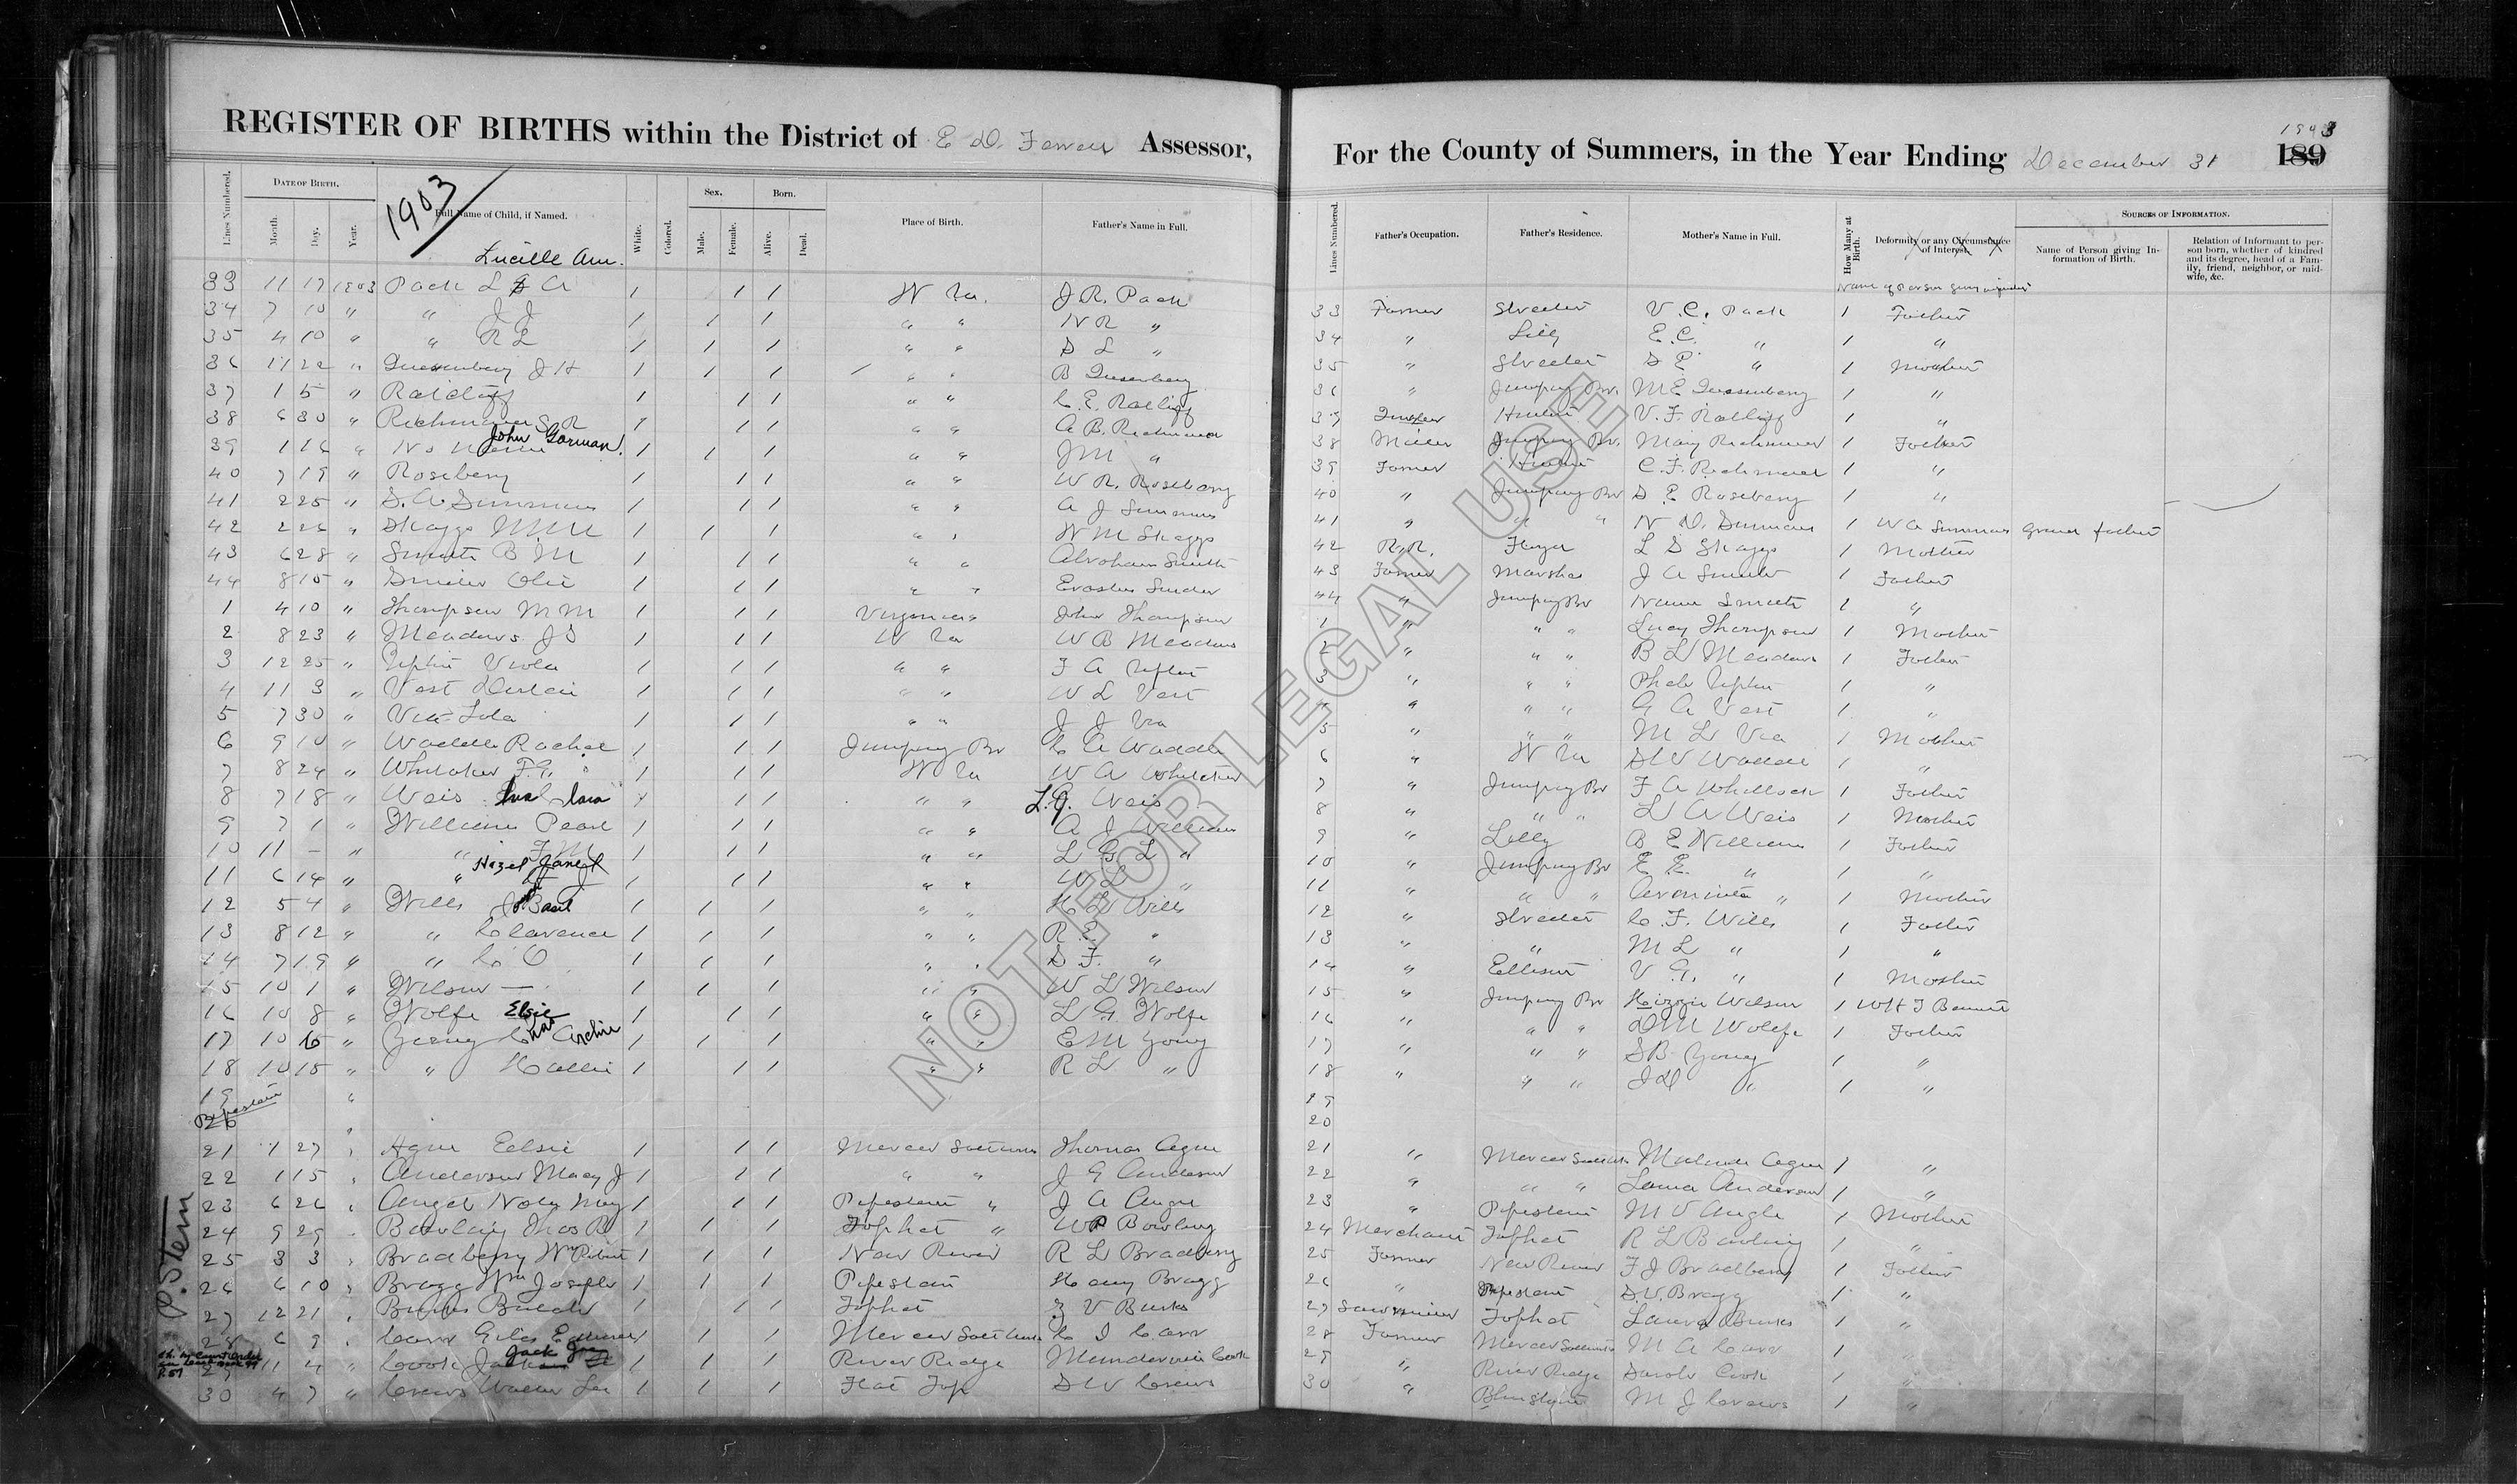 REGISTER OF BIRTHS within the District of E D. Ferrell Assessor,
For the County of Summers, in the Year Ending December 31 1903 189
Lines Numbered. DATE OF BIRTH. Month. Day. Year. Full Name of Child, if Named. White. Colored. Sex. Male. Female. Born. Alive. Dead. Place of Birth. Father's Name in Full.
Lines Numbered. Father's Occupation. Father's Residence. Mother's Name in Full. How Many at Birth. Deformity or any Circumstance of Interest. SOURCES OF INFORMATION. Name of Person giving Information of Birth. Relation of Informant to person born, whether of kindred and its degree, head of a Family, friend, neighbor, or midwife, &c.
1903
Lucille Ann.
Name of Person giving
33 11 17 1903 Pack L A 1 1 1 W Va. J. R. Pack 33 Farmer Streeter V. C. Pack 1 Father
34 7 10 " " J J 1 1 1 " " N R " 34 " Lilly E. C. " 1 "
35 4 10 " " R L 1 1 1 " " S L " 35 " Streeter S E " 1 Mother
36 11 22 " Quesenbery J H 1 1 1 " " B Quesenbery 36 " Jumping Br. M E Quesenbery 1 "
37 1 5 " Ratcliff 1 1 1 " " C. E. Ratliff 37 V. F. Ratliff 1 "
38 6 30 " Richmond S R 1 1 1 " " A B. Richmond 38 Miller Jumping Br. Mary Richmond 1 Father
39 1 16 " No Name John Gorman. 1 1 1 " " J M " 39 Farmer C. F. Richmond 1 "
40 7 19 " Roseberry 1 1 1 " " W R. Roseberry 40 " Jumping Br S E Roseberry 1 "
41 2 25 " S. A. Simmons 1 1 1 " " A J Simmons 41 " " " N D. Simmons 1 W A Simmons Grand father
42 2 26 " Skaggs 1 1 1 " " W M Skaggs 42 R. R. L S Skaggs 1 Mother
43 6 28 " Smith B M 1 1 1 " " Abraham Smith 43 Farmer Marshes J A Smith 1 Father
44 8 15 " Olie 1 1 1 " " Erastus 44 " Jumping Br 1 "
1 4 10 " Thompson M M 1 1 1 Virginia John Thompson 1 " " " Lucy Thompson 1 Mother
2 8 23 " Meadows J S 1 1 1 W Va W B Meadows 2 " " " B L Meadows 1 Father
3 12 25 " Viola 1 1 1 " " F A 3 " " " 1 "
4 11 3 " Vest 1 1 1 " " W L Vest " " " G A Vest 1 "
5 7 30 " Via Lola 1 1 1 " " J J Via 5 " " " M L Via 1 Mother
6 9 10 " Waddle Rachel 1 1 1 Jumping Br C A Waddle 6 " W Va 1 "
7 8 24 " Whitaker F. G. 1 1 1 W Va W A Whitaker 7 " Jumping Br F A 1 Father
8 7 18 " Weis 1 1 1 " " L. G. Weis 8 " " " L A Weis 1 Mother
9 7 1 " Williams Pearl 1 1 1 " " A J Williams 9 " Lilly B E Williams 1 Father
10 11 – " " F M 1 1 1 " " L G L " 10 " Jumping Br E E. " 1 "
11 6 14 " " Hazel Janet 1 1 1 " " W L " 11 " " " " 1 Mother
12 5 4 " Wills Basil 1 1 1 " " H L Wills 12 " Streeter C. F. Wills 1 Father
13 8 12 " " Clarence 1 1 1 " " R E " 13 " " M L " 1 "
14 7 19 " " C O 1 1 1 " " S F. " 14 " Ellison V G. " 1 Mother
15 10 1 " Wilson — 1 1 1 " " W L Wilson 15 " Jumping Br Lizzie Wilson 1 W H T Bennett
16 10 8 " Wolfe Elsie 1 1 1 " " L G. Wolfe 16 " " " D M Wolfe 1 Father
17 10 16 " Young Chas Archie 1 1 1 " " E M Young 17 " " " S B Young 1 "
18 10 15 " " Hallie 1 1 1 " " R L " 18 " " " J D " 1 "
19 " 19
Pipestem 20 " 20
21 1 27 " Agee Eelsie 1 1 1 Mercer Salt Works Thomas Agee 21 " Mercer Salt Works Malinda Agee 1 "
22 1 15 " Anderson Macy J 1 1 1 " " J G Anderson 22 " " " Anderson 1 "
23 6 26 " Angel Nola May 1 1 1 Pipestem " J A Angle 23 " Pipestem M V Angle 1 Mother
24 9 29 " Bowling Thos R 1 1 1 Tophet " W P Bowling 24 Merchant Tophet R L Bowling 1 "
25 3 3 " Bradberry Wm Robert 1 1 1 New River R L Bradberry 25 Farmer New River F J Bradberry 1 Father
26 6 10 " Bragg Wm Joseph 1 1 1 Pipestem Harry Bragg 26 " Pipestem S. V. Bragg 1 "
27 12 21 " Burks 1 1 1 Tophet V Burks 27 Tophet Laura Burks 1 "
28 6 9 " Carr Giles 1 1 1 Mercer Salt Works C I Carr 28 Farmer Mercer Salt Works M A Carr 1 "
29 11 4 " Cook Jack 1 1 1 River Ridge Cook 29 " River Ridge Sarah Cook 1 "
30 4 7 " Crews Walter Lee 1 1 1 Flat Top S W Crews 30 " M J Crews 1 "
P. Stem
P. 57
NOT FOR LEGAL USE